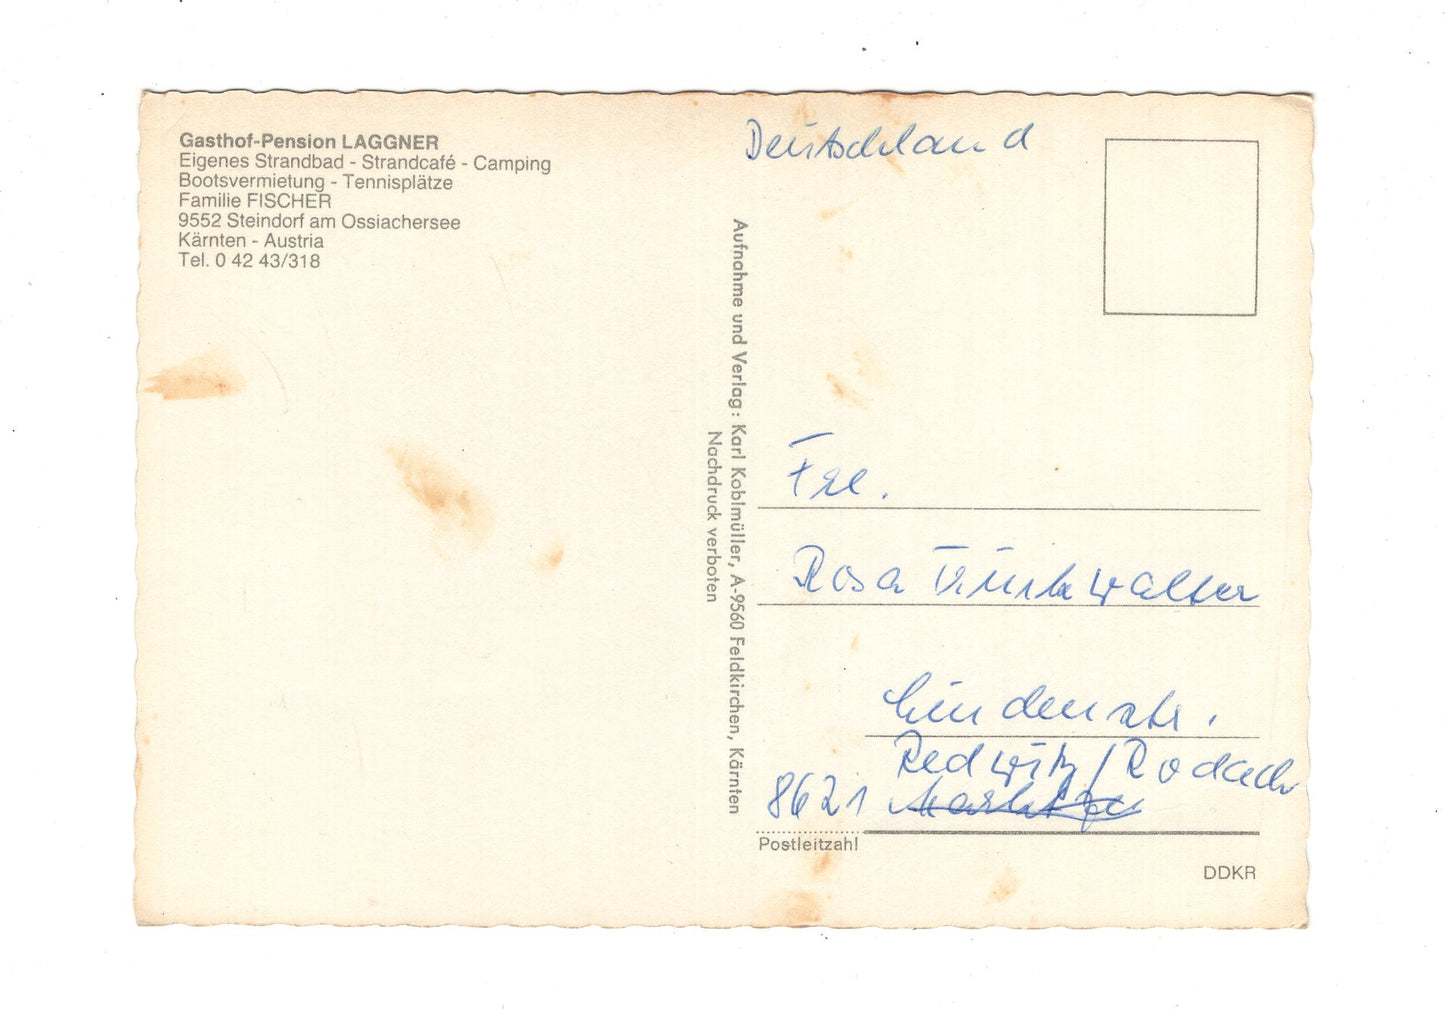 Gasthof-Pension LAGGNER
Eigenes Strandbad - Strandcafé - Camping
Bootsvermietung - Tennisplätze
Familie FISCHER
9552 Steindorf am Ossiachersee
Kärnten - Austria
Tel. 0 42 43/318
Aufnahme und Verlag: Karl Koblmüller, A-9560 Feldkirchen, Kärnten
Nachdruck verboten
Deutschland
Frl.
Rosa Trinkwalter
Lindenstr.
Redwitz/Rodach
8621
Postleitzahl
DDKR